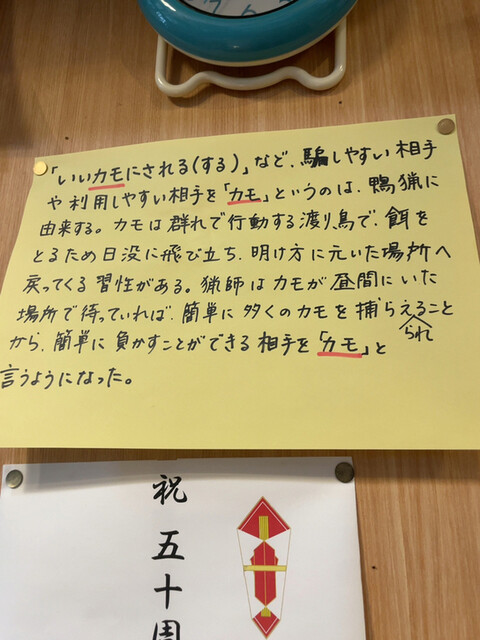 「いいカモにされる(する)」など、騙しやすい相手
や利用しやすい相手を「カモ」というのは、鴨猟に
由来する。カモは群れで行動する渡り鳥で、餌を
とるため日没に飛び立ち、明け方に元いた場所へ
戻ってくる習性がある。猟師はカモが昼間にいた
場所で待っていれば、簡単に多くのカモを捕らえられること
から、簡単に負かすことができる相手を「カモ」と
言うようになった。
祝五十周